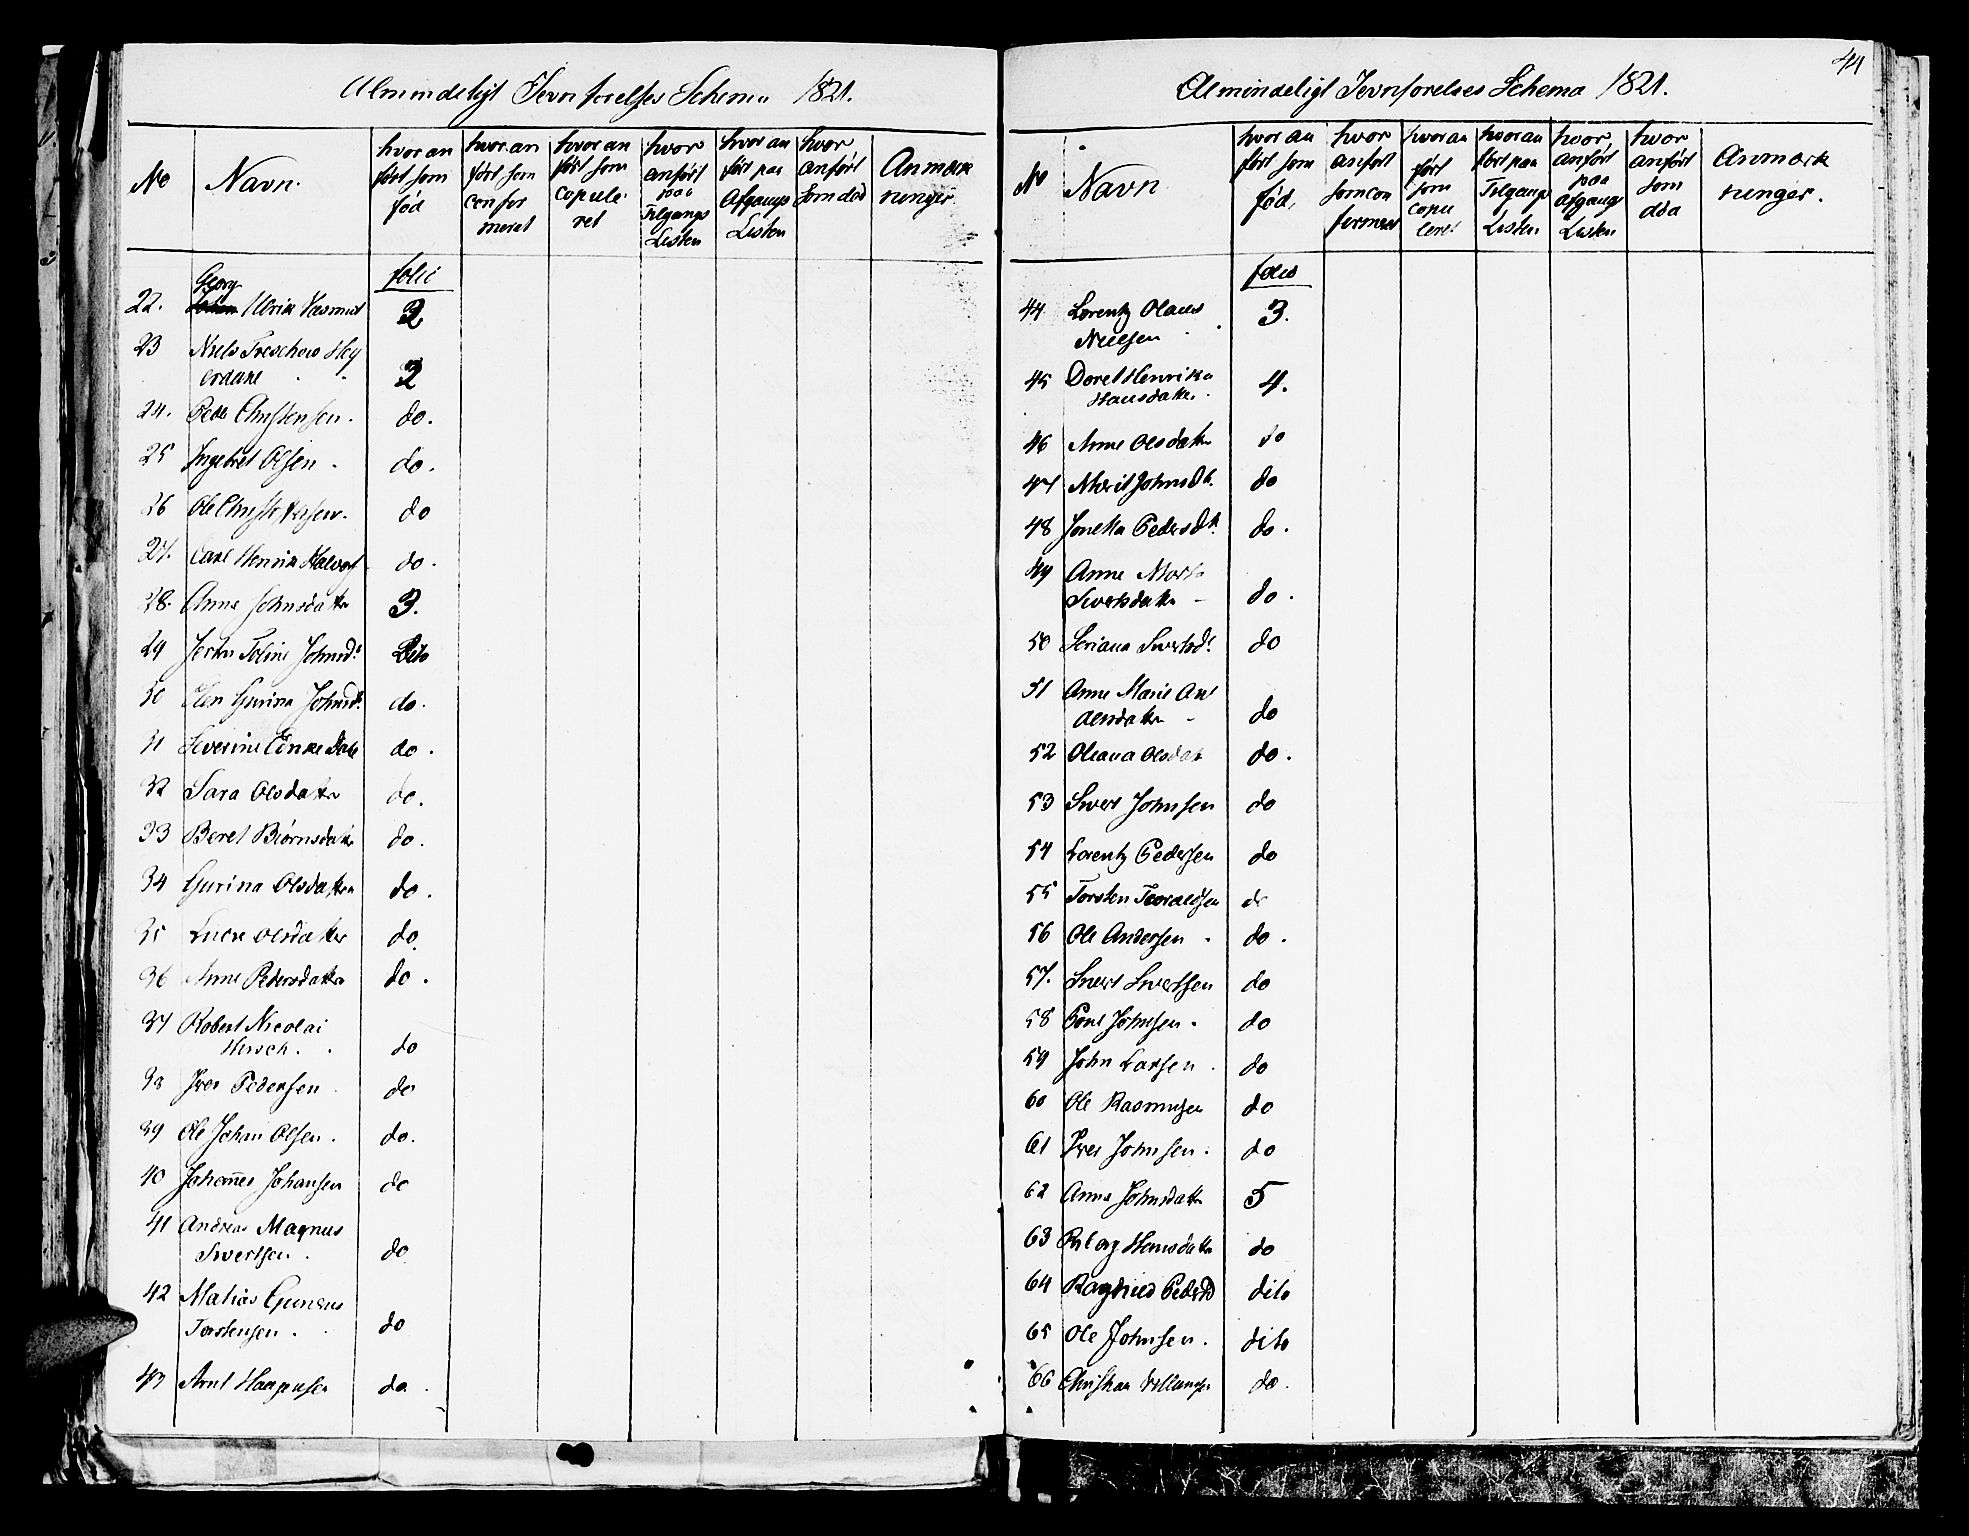 Almindeligt Jevnførelses Schema 1821.
No
Navn.
hvor an
ført som
fød
hvor an
ført som
confor
meret
hvor an
ført som
copule
ret
hvor
anført
paa
Tilgangs
Listen
hvor an
ført paa
Afgangs
Listen
hvor
anført
som død
Anmærk
ninger
folio
Georg
22. Ulrik Rasmus 2
23 Niels Treschow Hey
erdahl 2
24. Peder Christensen. do.
25 Ingebret Olsen. do.
26 Ole Christophersen. do
27. Carl Henrik Halvors do.
28. Anne Johnsdatter 3.
29 Johnsd. Dito
30 Elen Gurina Johnsd. do.
31 Severine do.
32 Sara Olsdatter do.
33 Beret Biørnsdatter do.
34 Gurina Olsdatter do.
35 Olsdatter do.
36 Anne Pedersdatter do.
37 Robert Nicolai
Hirsch. do
38 Iver Pedersen do
39 Ole Johan Olsen. do.
40 Johannes Johansen do
41 Andreas Magnus
Sivertsen. do
42 Mathias Gunerus
Torstensen. do
43 Arnt Haagensen do.
44
Almindeligt Jevnførelses Schema 1821.
No
Navn
hvor an
ført som
fød,
hvor
anført
som con
fermeret
hvor an
ført
som
copu
leret
hvor an
ført paa
Tilgangs
Listen
hvor
anført
paa
Afgangs
Listen
hvor
anført
som
død
Anmærk
ninger.
folio
44 Lorentz Olaus
Nielsen 3.
45 Doret Henrika
Hansdatter. 4.
46 Anne Olsdatter do
47 Marit Johnsdt. do
48 Joneka Pedersdt. do.
49 Anne Marta
Sivertsdatter do.
50 Seriana Sivertsd. do
51 Anne Marie An
dersdatter do
52 Oleana Olsdat do.
53 Sivert Johnsen do
54 Lorentz Pedersen do
55 Torsten Toraldsen do
56 Ole Andersen do.
57. Sivert Sivertsen do
58 Poul Johnsen. do
59 John Larsen. do
60 Ole Rasmusen do
61 Iver Johnsen. do
62 Anne Johnsdatter 5
63 Hansdatter do
64 Ragnild Pedersd dito
65 Ole Johnsen. dito
66 Christian do.